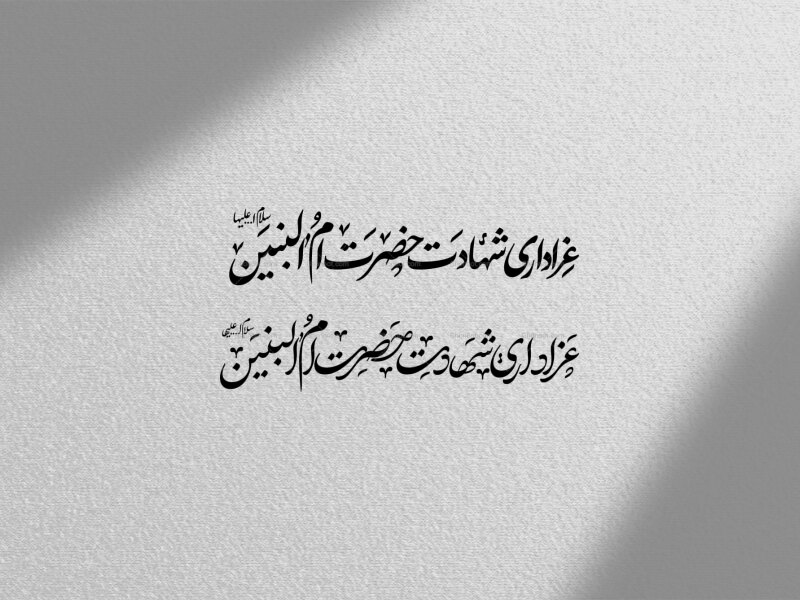 عزاداری شهادت حضرت ام البنین سلام الله علیها
عزاداری شهادت حضرت ام البنین سلام الله علیها